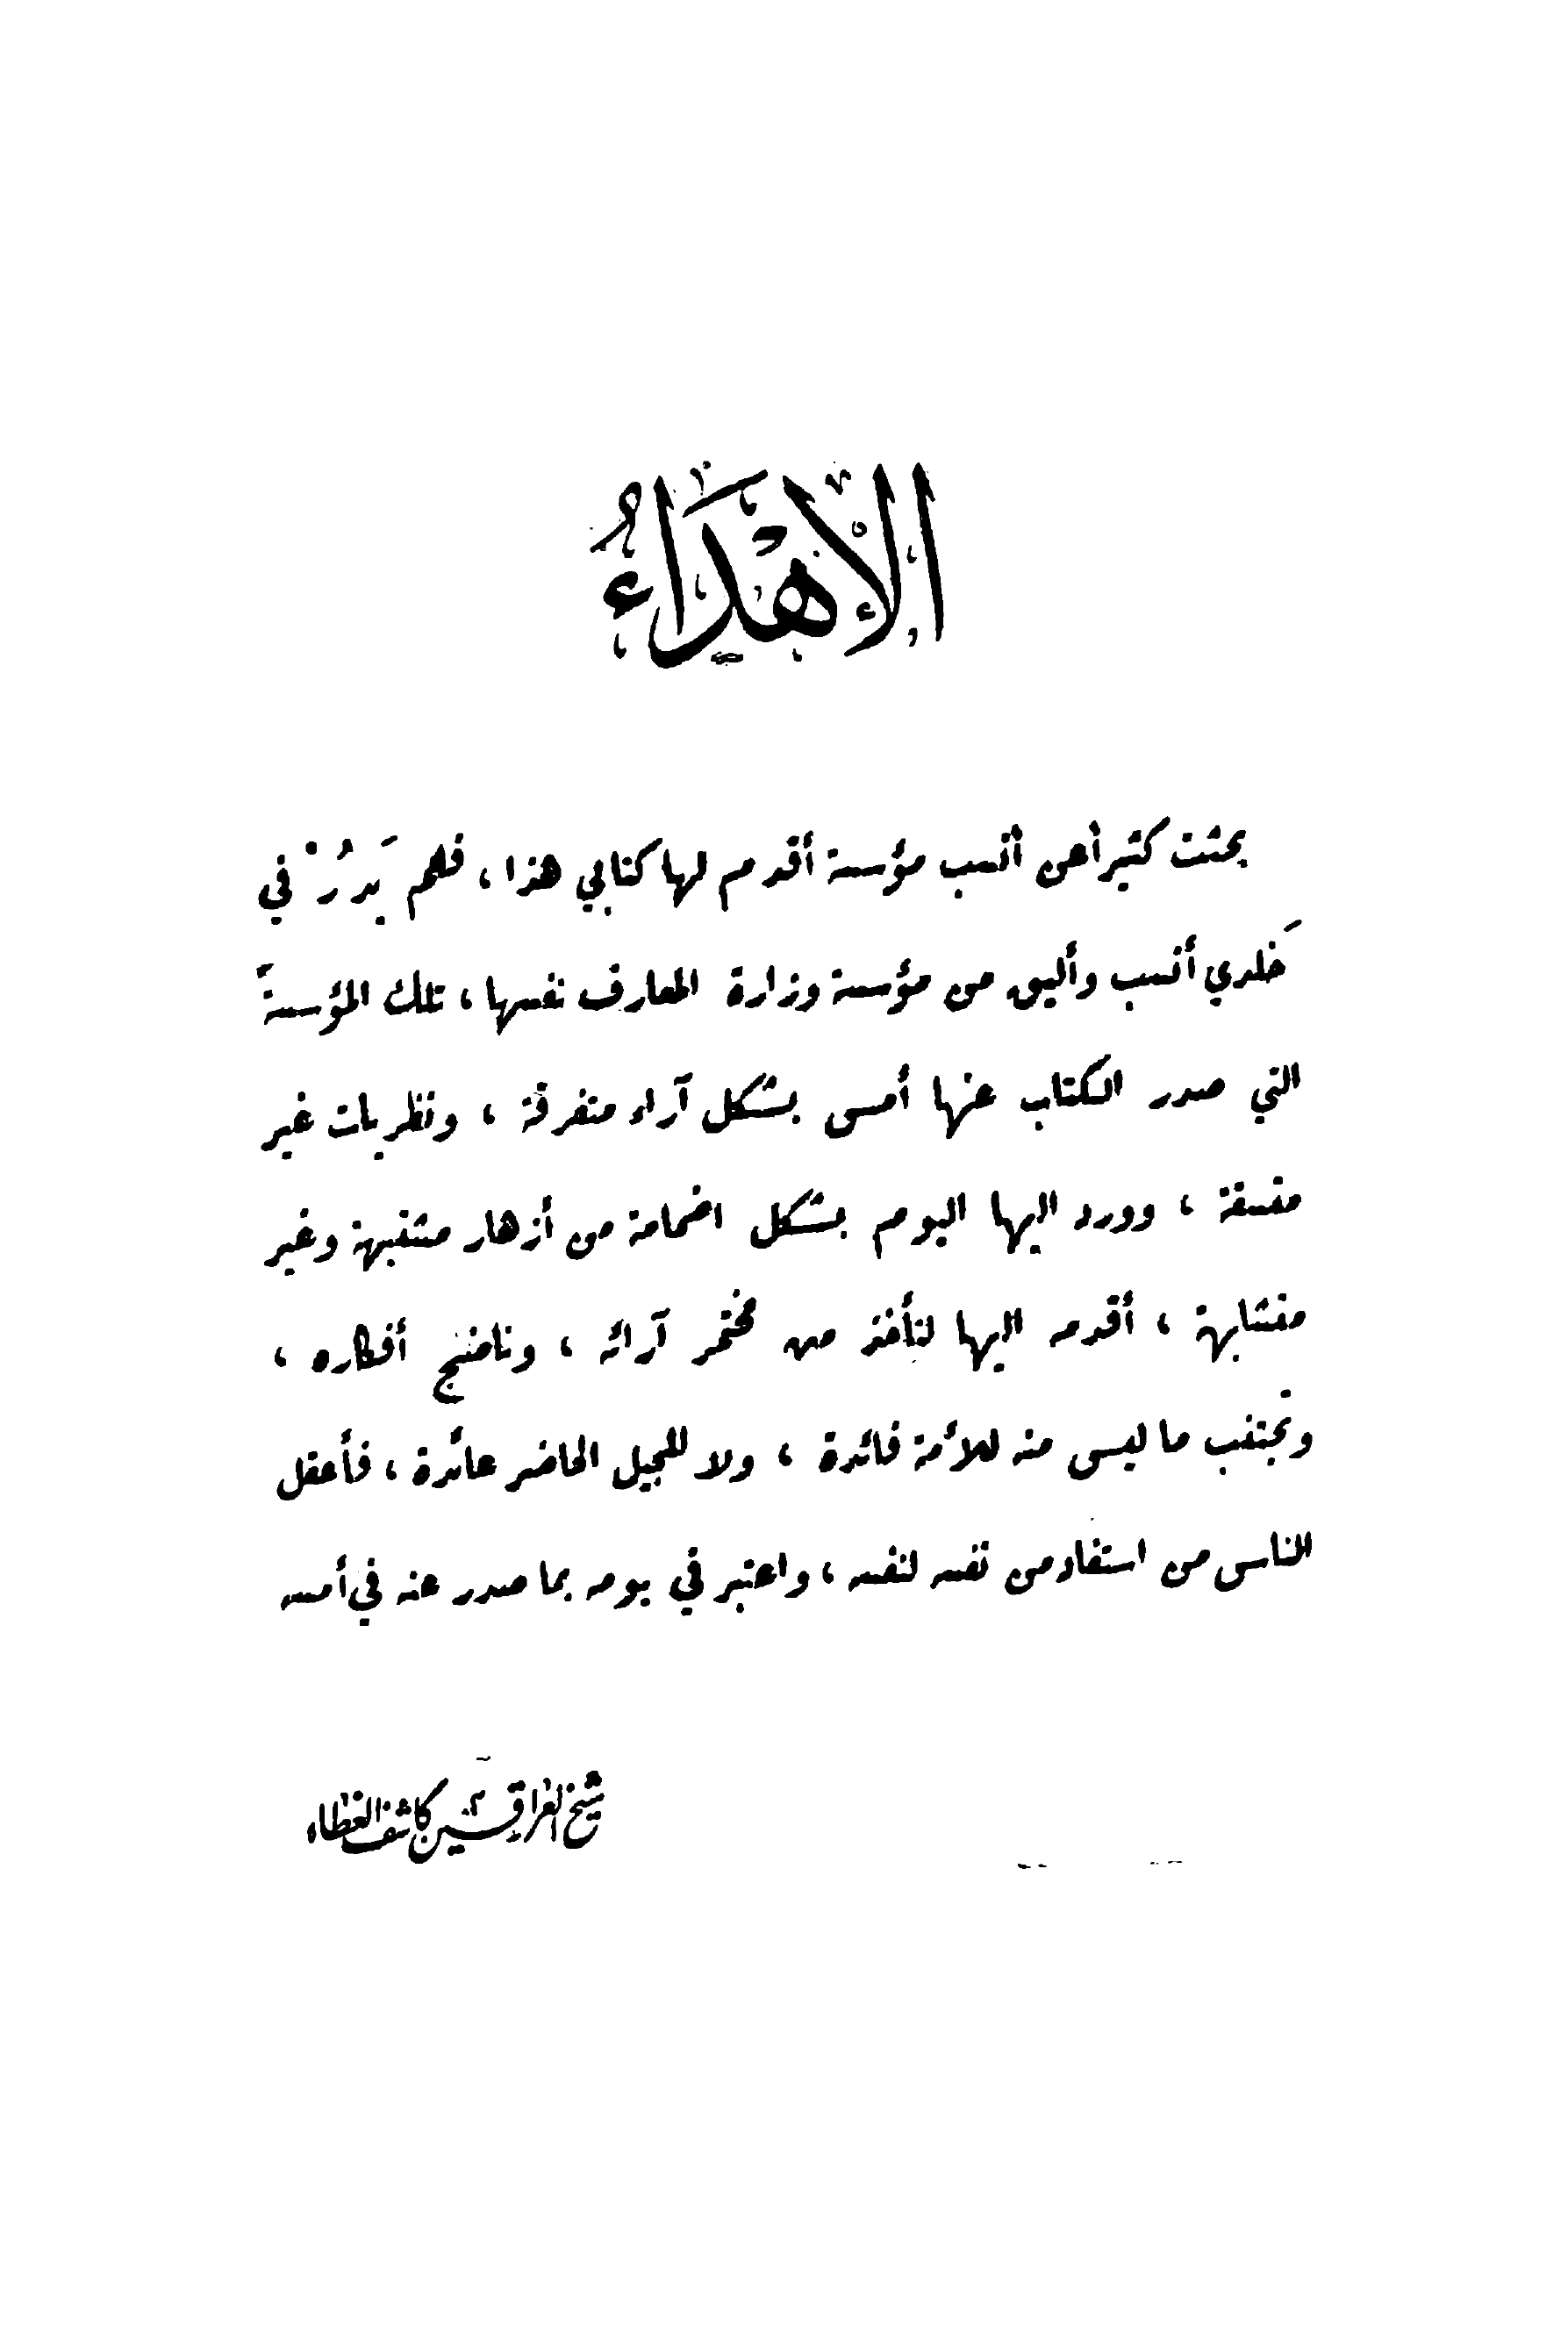 الإهْدَاءُ
بحثت كثيراً عن أنسب مؤسسة أقدم لها كتابي هذا ، فلم يَدُرْ في
خَلَدي أنسب وأليق من مؤسسة وزارة المعارف نفسها ، تلك المؤسسةَ
التي صدر الكتاب عنها أمس بشكل آراء متفرقة ، ونظريات غير
منسقة ، وورد اليها اليوم بشكل اضمامة من أزهار مشتبهة وغير
متشابهة ، أقدمه اليها لتأخذ من مختمر آرائه ، وناضج أفكاره ،
وتجتنب ما ليس منه للأمة فائدة ، ولا للجيل الحاضر عائدة ، فأعقل
الناس من استفاد من نفسه لنفسه ، واعتبر في يومه بما صدر عنه في أمسه
شيخ العراقين كاشف الغطاء